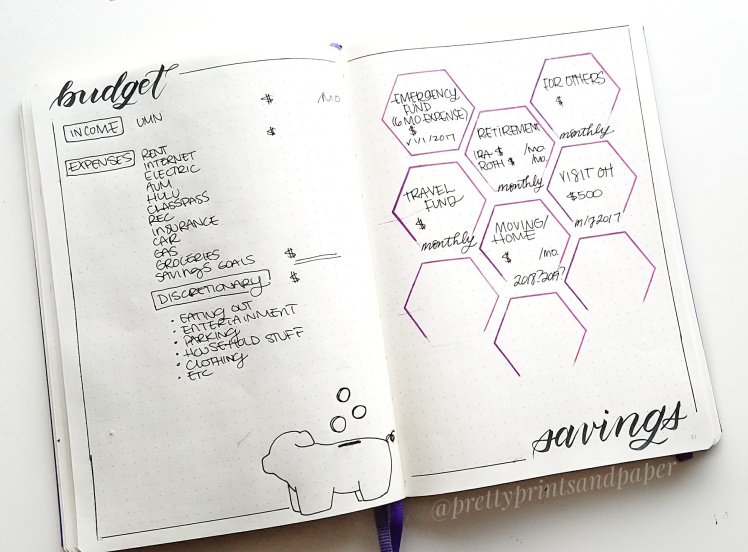 budget
$ /MO
INCOME UMN
$
EXPENSES
RENT
INTERNET
ELECTRIC
AVM
HULU
CLASSPASS
REC
INSURANCE
CAR
GAS
GROCERIES
SAVINGS GOALS $
DISCRETIONARY $
• EATING OUT
• ENTERTAINMENT
• PARKING
• HOUSEHOLD STUFF
• CLOTHING
• ETC
EMERGENCY
FUND
(6 MO.EXPENSE)
$
1/1/2017
FOR OTHERS
$
monthly
RETIREMENT
IRA $ /mo.
ROTH $ /mo.
monthly
TRAVEL
FUND
$
monthly
VISIT OH
$500
2017
MOVING/
HOME
$ /mo.
2018? 2019?
savings
@prettyprintsandpaper